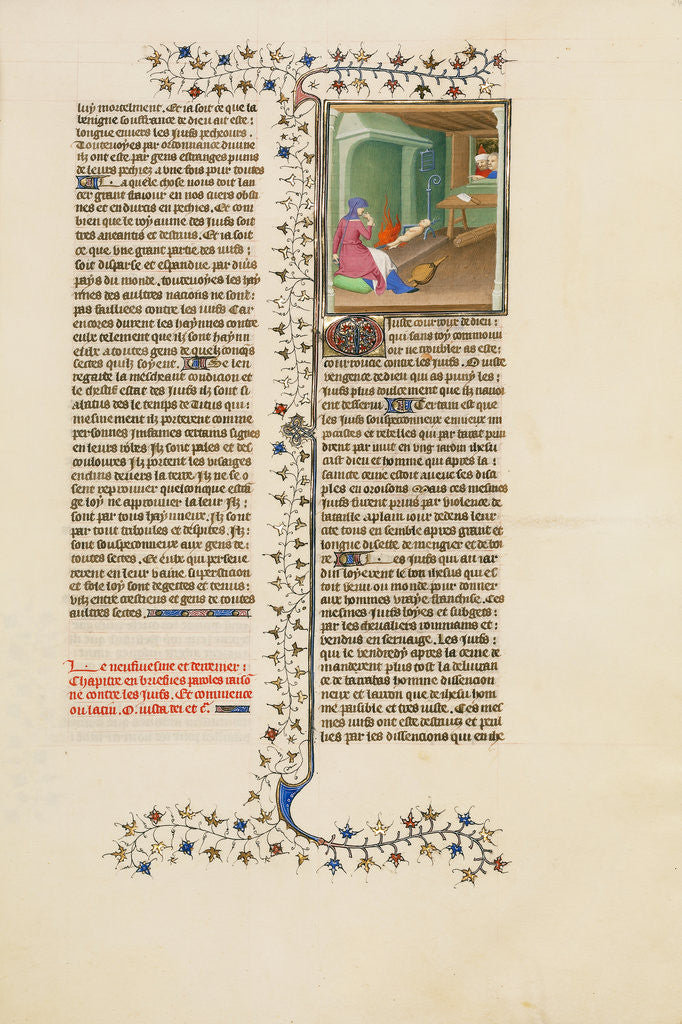 luy mortelment. Et ia soit ce que la
benigne souffrance de dieu ait este:
longue envers les Juifs pecheours.
Toutevoyes par ordonnance divine
ilz ont este par gens estranges punis
de leurs pechiez a une fois pour toutes
La quele chose nous doit lan
cer grant fraiour en nos cuers obsti
nes et endurcis en pechies. Et com
bien que le royaume des Juifs soit
tres aneantis et destruis. Et ia soit
ce que une grant partie des iuifs:
soit disparse et espandue par divers
pays du monde. toutevoyes les hay
nnes des aultres nacions ne sont:
pas faillies contre les iuifs Car
encores durent les haynnes contre
eulx telement que ilz sont haynn
eulx a toutes gens de quelxconques
sectes quilz soyent. Se len
regarde la meschant condicion et
le chestif estat des Juifs ilz sont si
alatus des le temps de Titus qui:
mesmement ilz porterent comme
personnes infames certains signes
en leurs robes Ilz sont pales et des
coulourez Ilz portent les visaiges
enclins devers la terre Ilz ne se o
sent reprouver quelconque estra
ge loy ne approuver la leur Ilz:
sont par tous haynneux. Ilz sont
par tout triboules et despites. Ilz:
sont souspeconneux aux gens de:
toutes sectes. Et eulx qui perseve
rerent en leur vaine supersticion
et fole loy sont degectes et tenus:
vilz entre crestiens et gens de toutes
aultres sectes.
Le neufiiesme et derrenier:
Chapitre en briefves paroles raiso
ne contre les Juifs. Et commence
ou latin. O. iusta dei et c.
O Juste courroux de dieu:
qui sans toy commouvi
oir ne troubler as este:
courroucie contre les Juifs. O iuste
vengence de dieu qui as puny les:
Juifs plus doulcement que ilz navoi
ent desservi. Certain est que
les Juifs souspeconneux envieux im
pocrites et rebelles qui par barat prin
drent par nuit en ung iardin ihesu
crist dieu et homme qui apres la:
saincte cene estoit avec ses disci
ples en oroisons Mais ces mesmes
Juifs furent prins par violence de
bataille a plain iour dedens leur
cite tous ensemble apres grant et
longue disette de mengier et de boi
re Les Juifs qui au iar
din loyerent le bon ihesus qui es
toit venu ou monde pour donner
aux hommes vraye franchise. Ces
mesmes Juifs loyes et subgets:
par les chevaliers rommains et:
vendus en servaige. Les Juifs:
qui le vendredy apres la cene de
manderent plus tost la delivran
ce de barabas homme dissencion
neux et larron que de ihesu hom
me paisible et tres iuste. Ces mes
mes iuifs ont este destruis et peril
lies par les dissencions qui en ihe